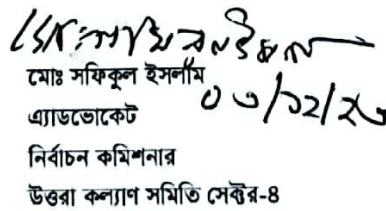 মোঃ সফিকুল ইসলাম
০৩/১২/২৩
এ্যাডভোকেট
নির্বাচন কমিশনার
উত্তরা কল্যাণ সমিতি সেক্টর-4